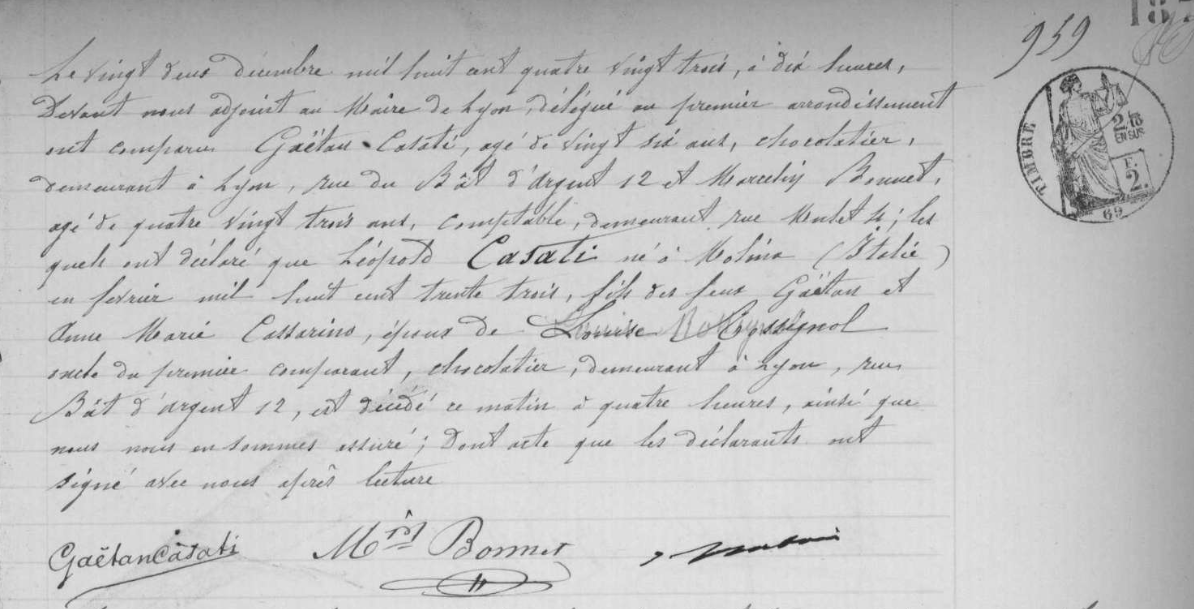 959
187
Le vingt deux décembre mil huit cent quatre vingt trois, à dix heures,
Devant nous adjoint au Maire de Lyon, délégué au premier arrondissement
ont comparu Gaëtan Casati, agé de vingt six ans, chocolatier,
demeurant à Lyon, rue du Bât d'Argent 12 et Marcelin Bonnet,
agé de quatre vingt trois ans, comptable, demeurant rue Mulet 4; les
quels ont déclaré que Léopold Casati né à Molina (Italie)
en février mil huit cent trente trois, fils des feux Gaëtan et
Anne Marie Cassarino, époux de Louise Rossignol
oncle du premier comparant, chocolatier, demeurant à Lyon, rue
Bât d'Argent 12, est décédé ce matin à quatre heures, ainsi que
nous nous en sommes assuré; Dont acte que les déclarants ont
signé avec nous après lecture
Gaëtan Casati Bonnet
TIMBRE
2/10
EN SUS
F.
2.
69